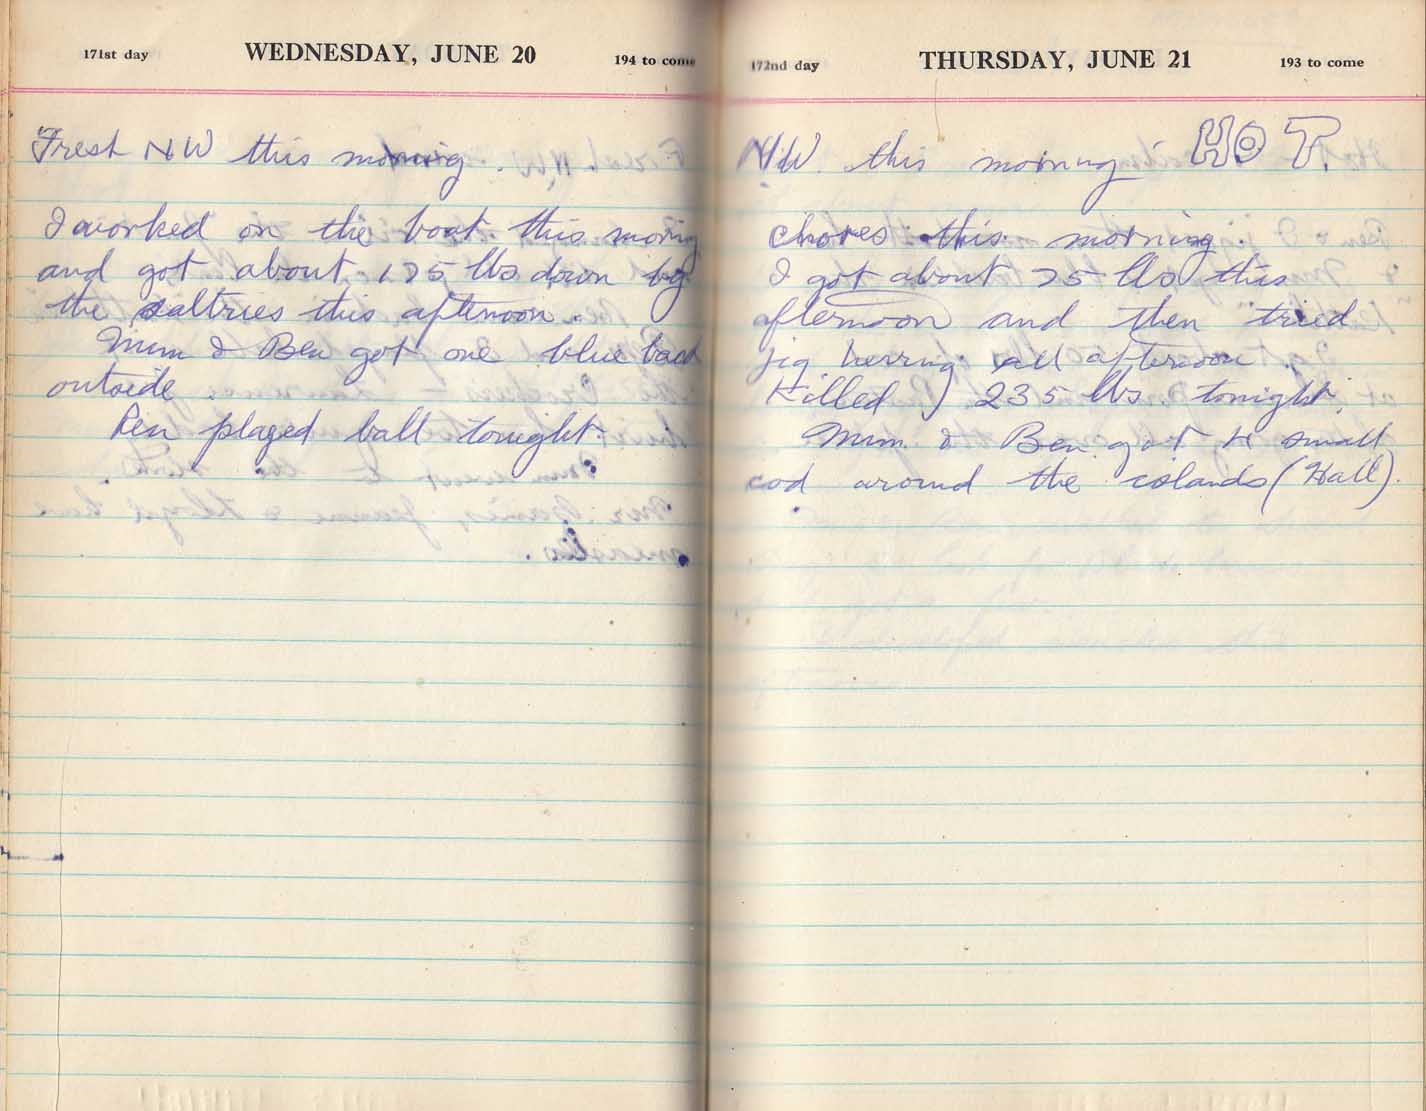 171st day WEDNESDAY, JUNE 20 194 to come
Fresh NW this morning.
I worked on the boat this morning
and got about 175 lbs down by
the saltries this afternoon.
Mum & Ben got one blue back
outside
Ben played ball tonight.
172nd day THURSDAY, JUNE 21 193 to come
NW. this morning HOT.
chores this morning.
I got about 75 lbs this
afternoon and then tried
jig herring all afternoon.
Killed 235 lbs. tonight.
Mum & Ben got 4 small
cod around the islands (Hall).